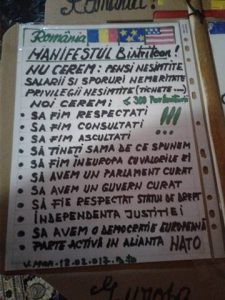 România
MANIFESTUL Bistriţean!
NU CEREM: PENSI NESIMTITE
SALARII SI SPORURI NEMERITATE
PRIVILEGII NESIMTITE (TICHETE ...)
NOI CEREM: ≤ 300 Parlamentari
• SĂ FIM RESPECTATI !!!
• SĂ FIM CONSULTATI
• SĂ FIM ASCULTATI
• SĂ TINETI SAMA DE CE SPUNEM
• SĂ FIM ÎN EUROPA CU VALORILE EI
• SĂ AVEM UN PARLAMENT CURAT
• SĂ AVEM UN GUVERN CURAT
• SĂ FIE RESPECTAT STATUL DE DREPT
• INDEPENDENTA JUSTITIEI
• SĂ AVEM O DEMOCRATIE EUROPEANĂ
• PARTE ACTIVĂ IN ALIANTA NATO
12.02.017
Europa